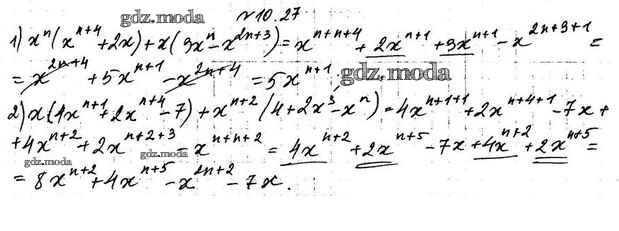 gdz.moda
№10.27
1) xⁿ(xⁿ⁺⁴+2x)+x(3xⁿ-x²ⁿ⁺³)=xⁿ⁺ⁿ⁺⁴+2xⁿ⁺¹+3xⁿ⁺¹-x²ⁿ⁺³⁺¹=
=x²ⁿ⁺⁴+5xⁿ⁺¹-x²ⁿ⁺⁴=5xⁿ⁺¹.
gdz.moda
2) x(4xⁿ⁺¹+2xⁿ⁺⁴-7)+xⁿ⁺²(4+2x³-xⁿ)=4xⁿ⁺¹⁺¹+2xⁿ⁺⁴⁺¹-7x+
+4xⁿ⁺²+2xⁿ⁺²⁺³-xⁿ⁺ⁿ⁺²=4xⁿ⁺²+2xⁿ⁺⁵-7x+4xⁿ⁺²+2xⁿ⁺⁵=
gdz.moda
gdz.moda
=8xⁿ⁺²+4xⁿ⁺⁵-x²ⁿ⁺²-7x.